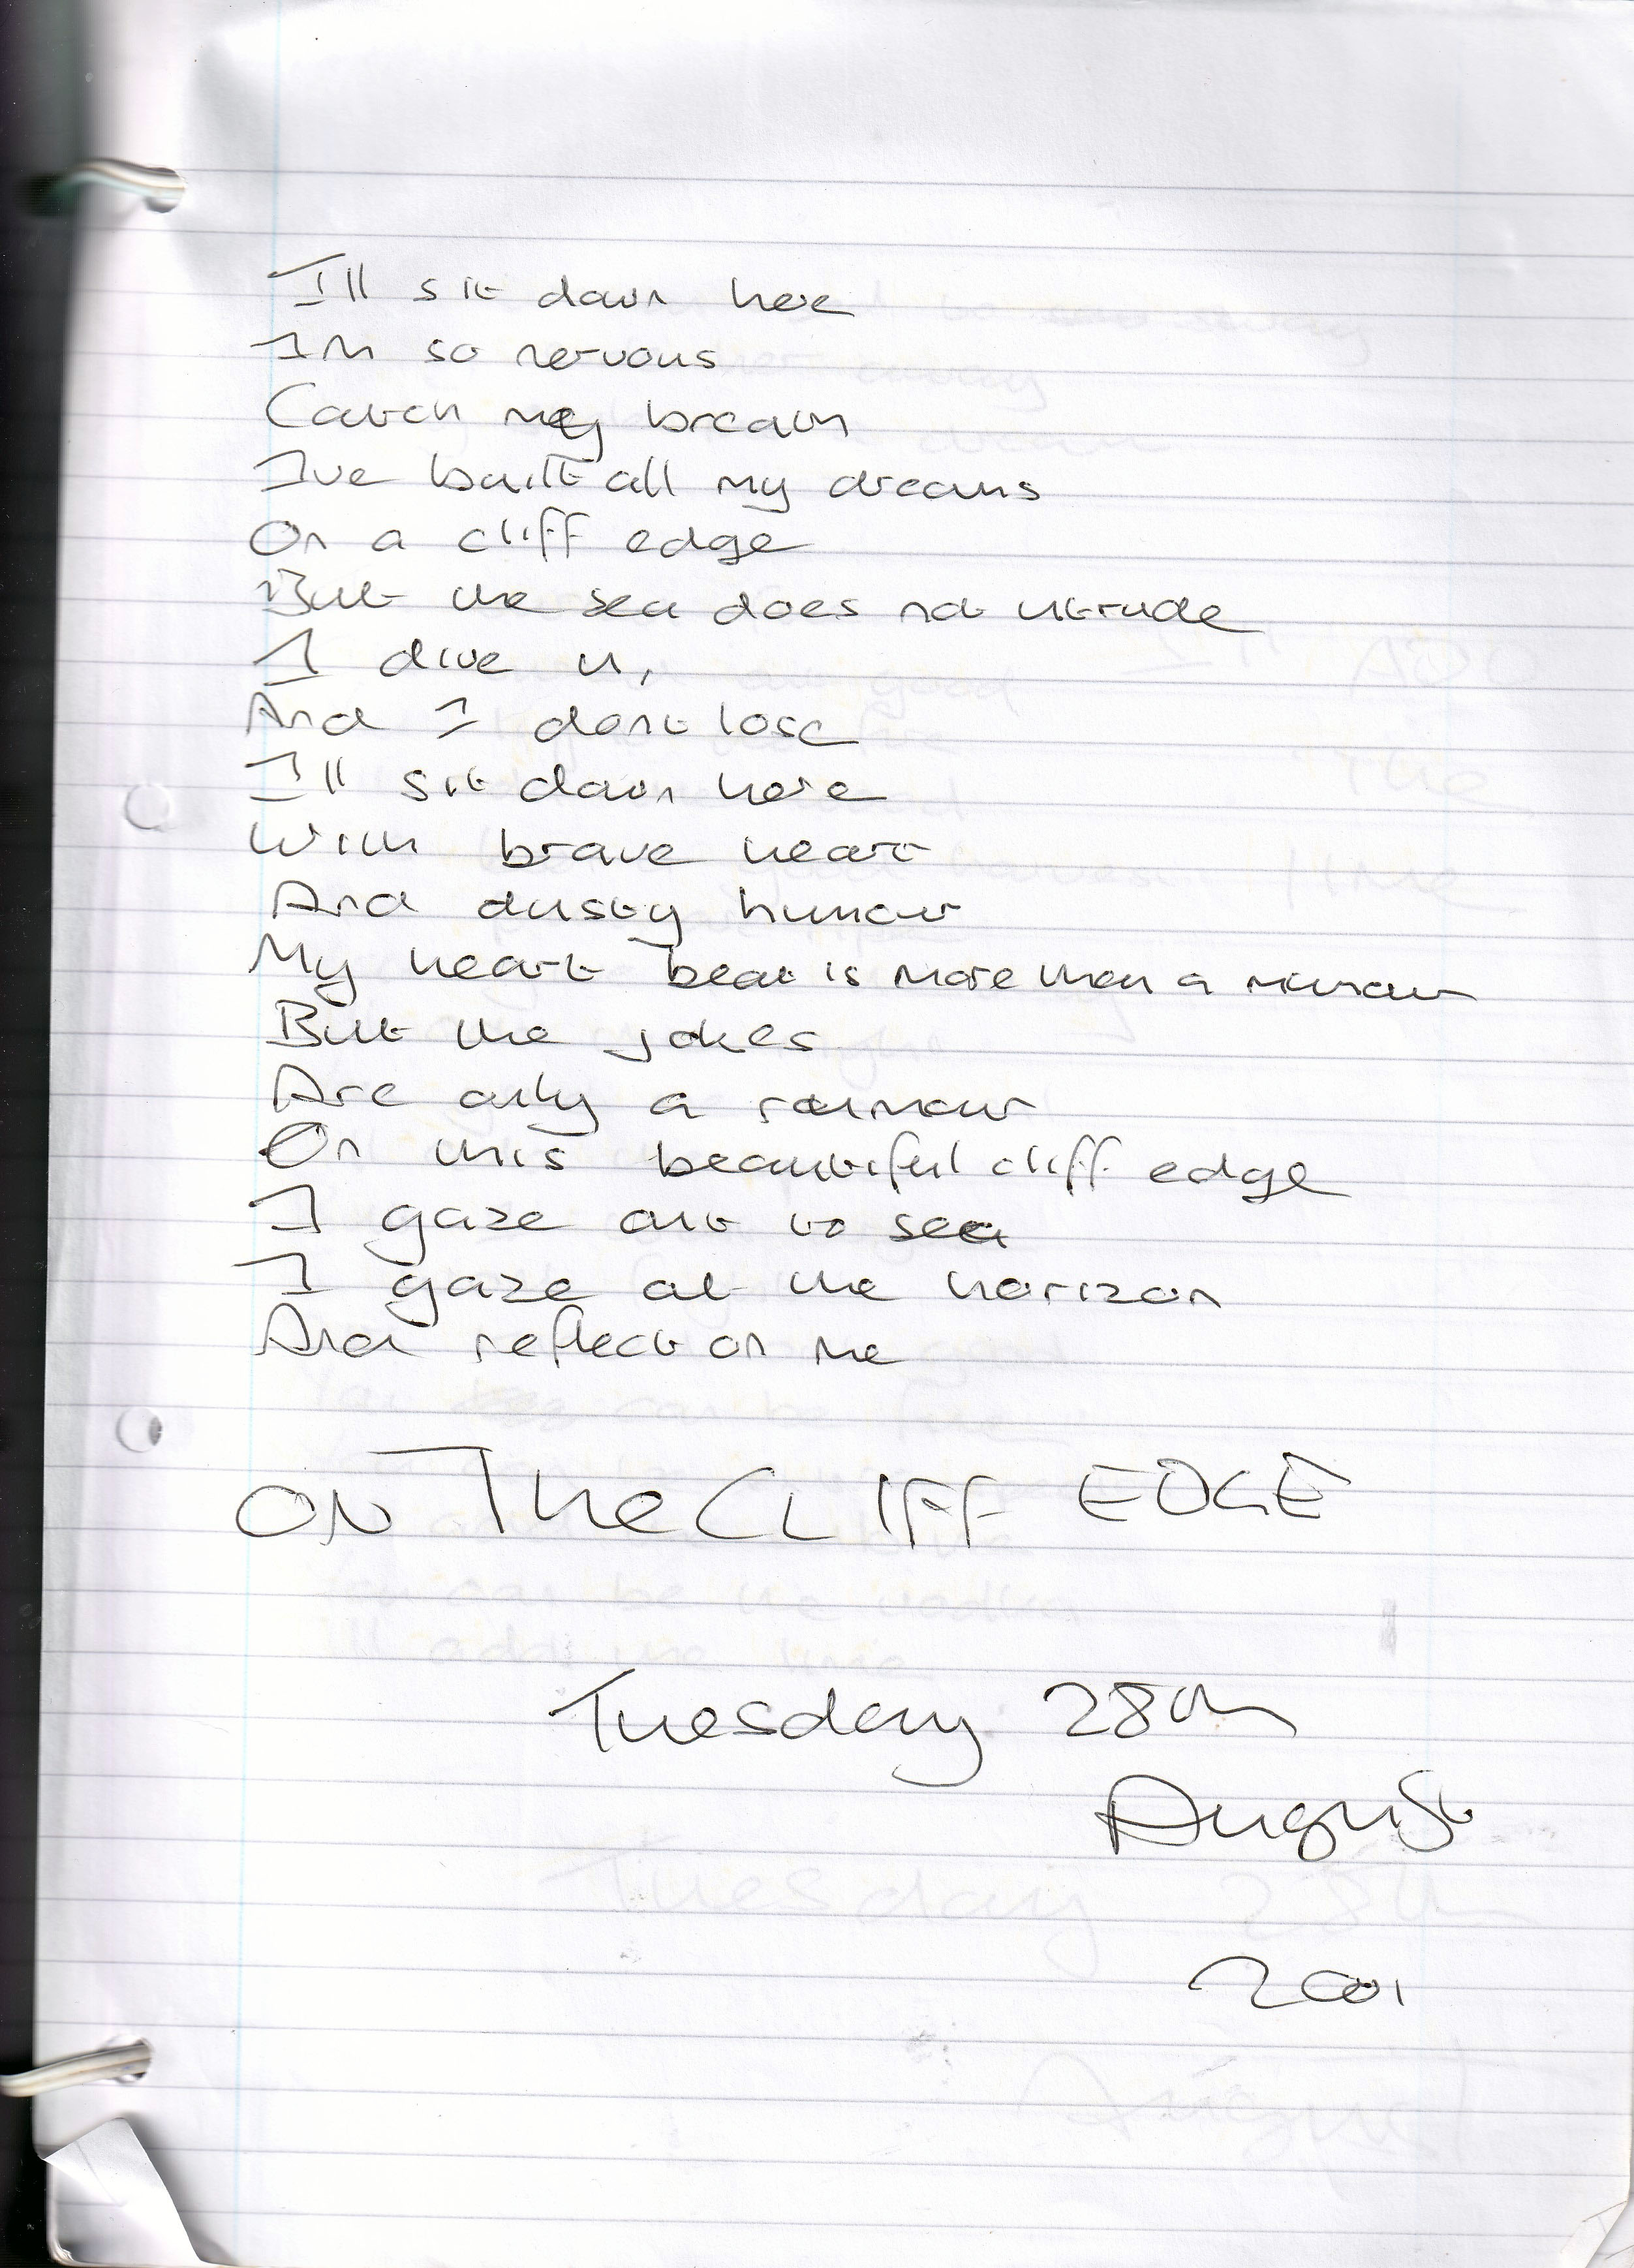 I'll sit down here
Im so nervous
Catch my breath
Ive built all my dreams
On a cliff edge
But the sea does not intrude
I dive in,
And I dont lose
I'll sit down here
With brave heart
And dusty humour
My heart beat is more than a murmur
But the jokes
Are only a rumour
On this beautiful cliff edge
I gaze out to sea
I gaze at the horizon
And reflect on me
ON THE CLIFF EDGE
Tuesday 28th
August
2001